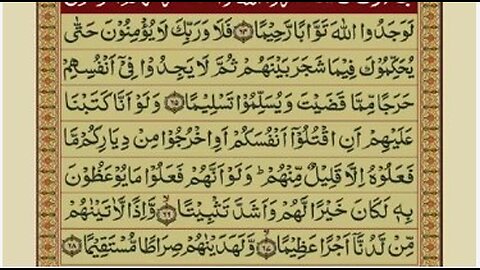 لَوَجَدُوا اللّٰهَ تَوَّابًا رَّحِيْمًا ﴿۶۴﴾ فَلَا وَرَبِّكَ لَا يُؤْمِنُوْنَ حَتّٰى
يُحَكِّمُوْكَ فِيْمَا شَجَرَ بَيْنَهُمْ ثُمَّ لَا يَجِدُوْا فِيْٓ اَنْفُسِهِمْ
حَرَجًا مِّمَّا قَضَيْتَ وَيُسَلِّمُوْا تَسْلِيْمًا ﴿۶۵﴾ وَلَوْ اَنَّا كَتَبْنَا
عَلَيْهِمْ اَنِ اقْتُلُوْٓا اَنْفُسَكُمْ اَوِ اخْرُجُوْا مِنْ دِيَارِكُمْ مَّا
فَعَلُوْهُ اِلَّا قَلِيْلٌ مِّنْهُمْ ؕ وَلَوْ اَنَّهُمْ فَعَلُوْا مَا يُوْعَظُوْنَ
بِهٖ لَكَانَ خَيْرًا لَّهُمْ وَاَشَدَّ تَثْبِيْتًا ﴿۶۶﴾ وَّاِذًا لَّاٰتَيْنٰهُمْ
مِّنْ لَّدُنَّاۤ اَجْرًا عَظِيْمًا ﴿۶۷﴾ وَّلَهَدَيْنٰهُمْ صِرَاطًا مُّسْتَقِيْمًا ﴿۶۸﴾